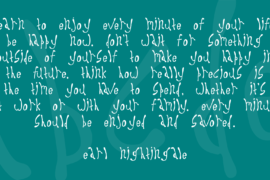 earn to enjoy every minute of your life
be happy now. don't wait for something
outside of yourself to make you happy in
the future. think how really precious is
the time you have to spend. whether it's
t work or with your family. every minut
should be enjoyed and savored.
earl nightingale